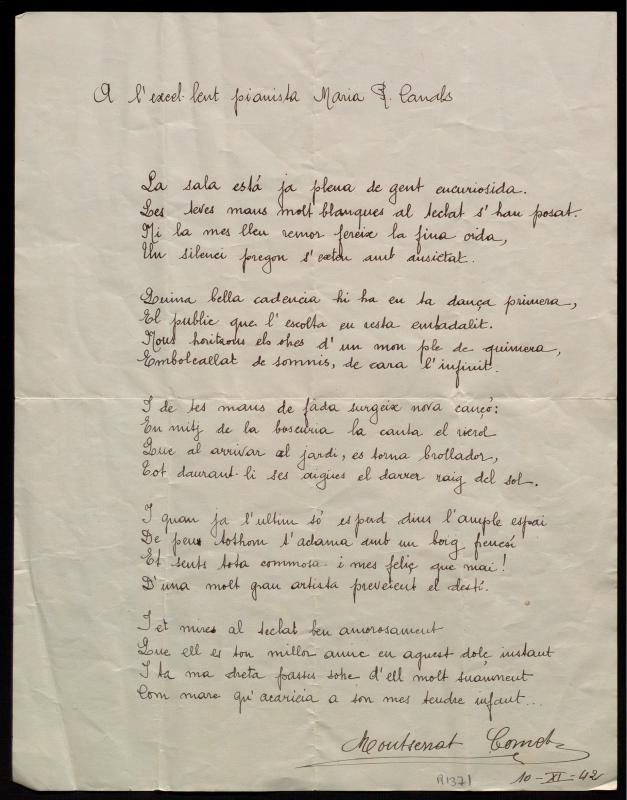 A l'excel·lent pianista Maria R. Canals
La sala está ja plena de gent encuriosida.
Les teves mans molt blanques al teclat s'han posat.
Ni la mes lleu remor fereix la fina oida,
Un silenci pregon s'exten amb ansietat.
Quina bella cadencia hi ha en ta dança primera,
El public que l'escolta en resta embadalit.
Nous horitzons els obres d'un mon ple de quimera,
Embolcallat de somnis, de cara l'infinit.
I de tes mans de fada surgeix nova cançó:
En mitj de la boscuria la canta el rierol
Que al arrivar al jardi, es torna brollador,
Tot daurant-li ses aigües el darrer raig del sol.
I quan ja l'ultim só es perd dins l'ample espai
De peus tothom t'aclama amb un boig frenesí
Et sents tota commosa i mes feliç que mai!
D'una molt gran artista preveient el destí.
I et mires al teclat ben amorosament
Que ell es ton millor amic en aquest dolç instant
I ta ma dreta passes sobre d'ell molt suaument
Com mare qu'acaricia a son mes tendre infant...
Montserrat Comet
R.1371
10-XI-42